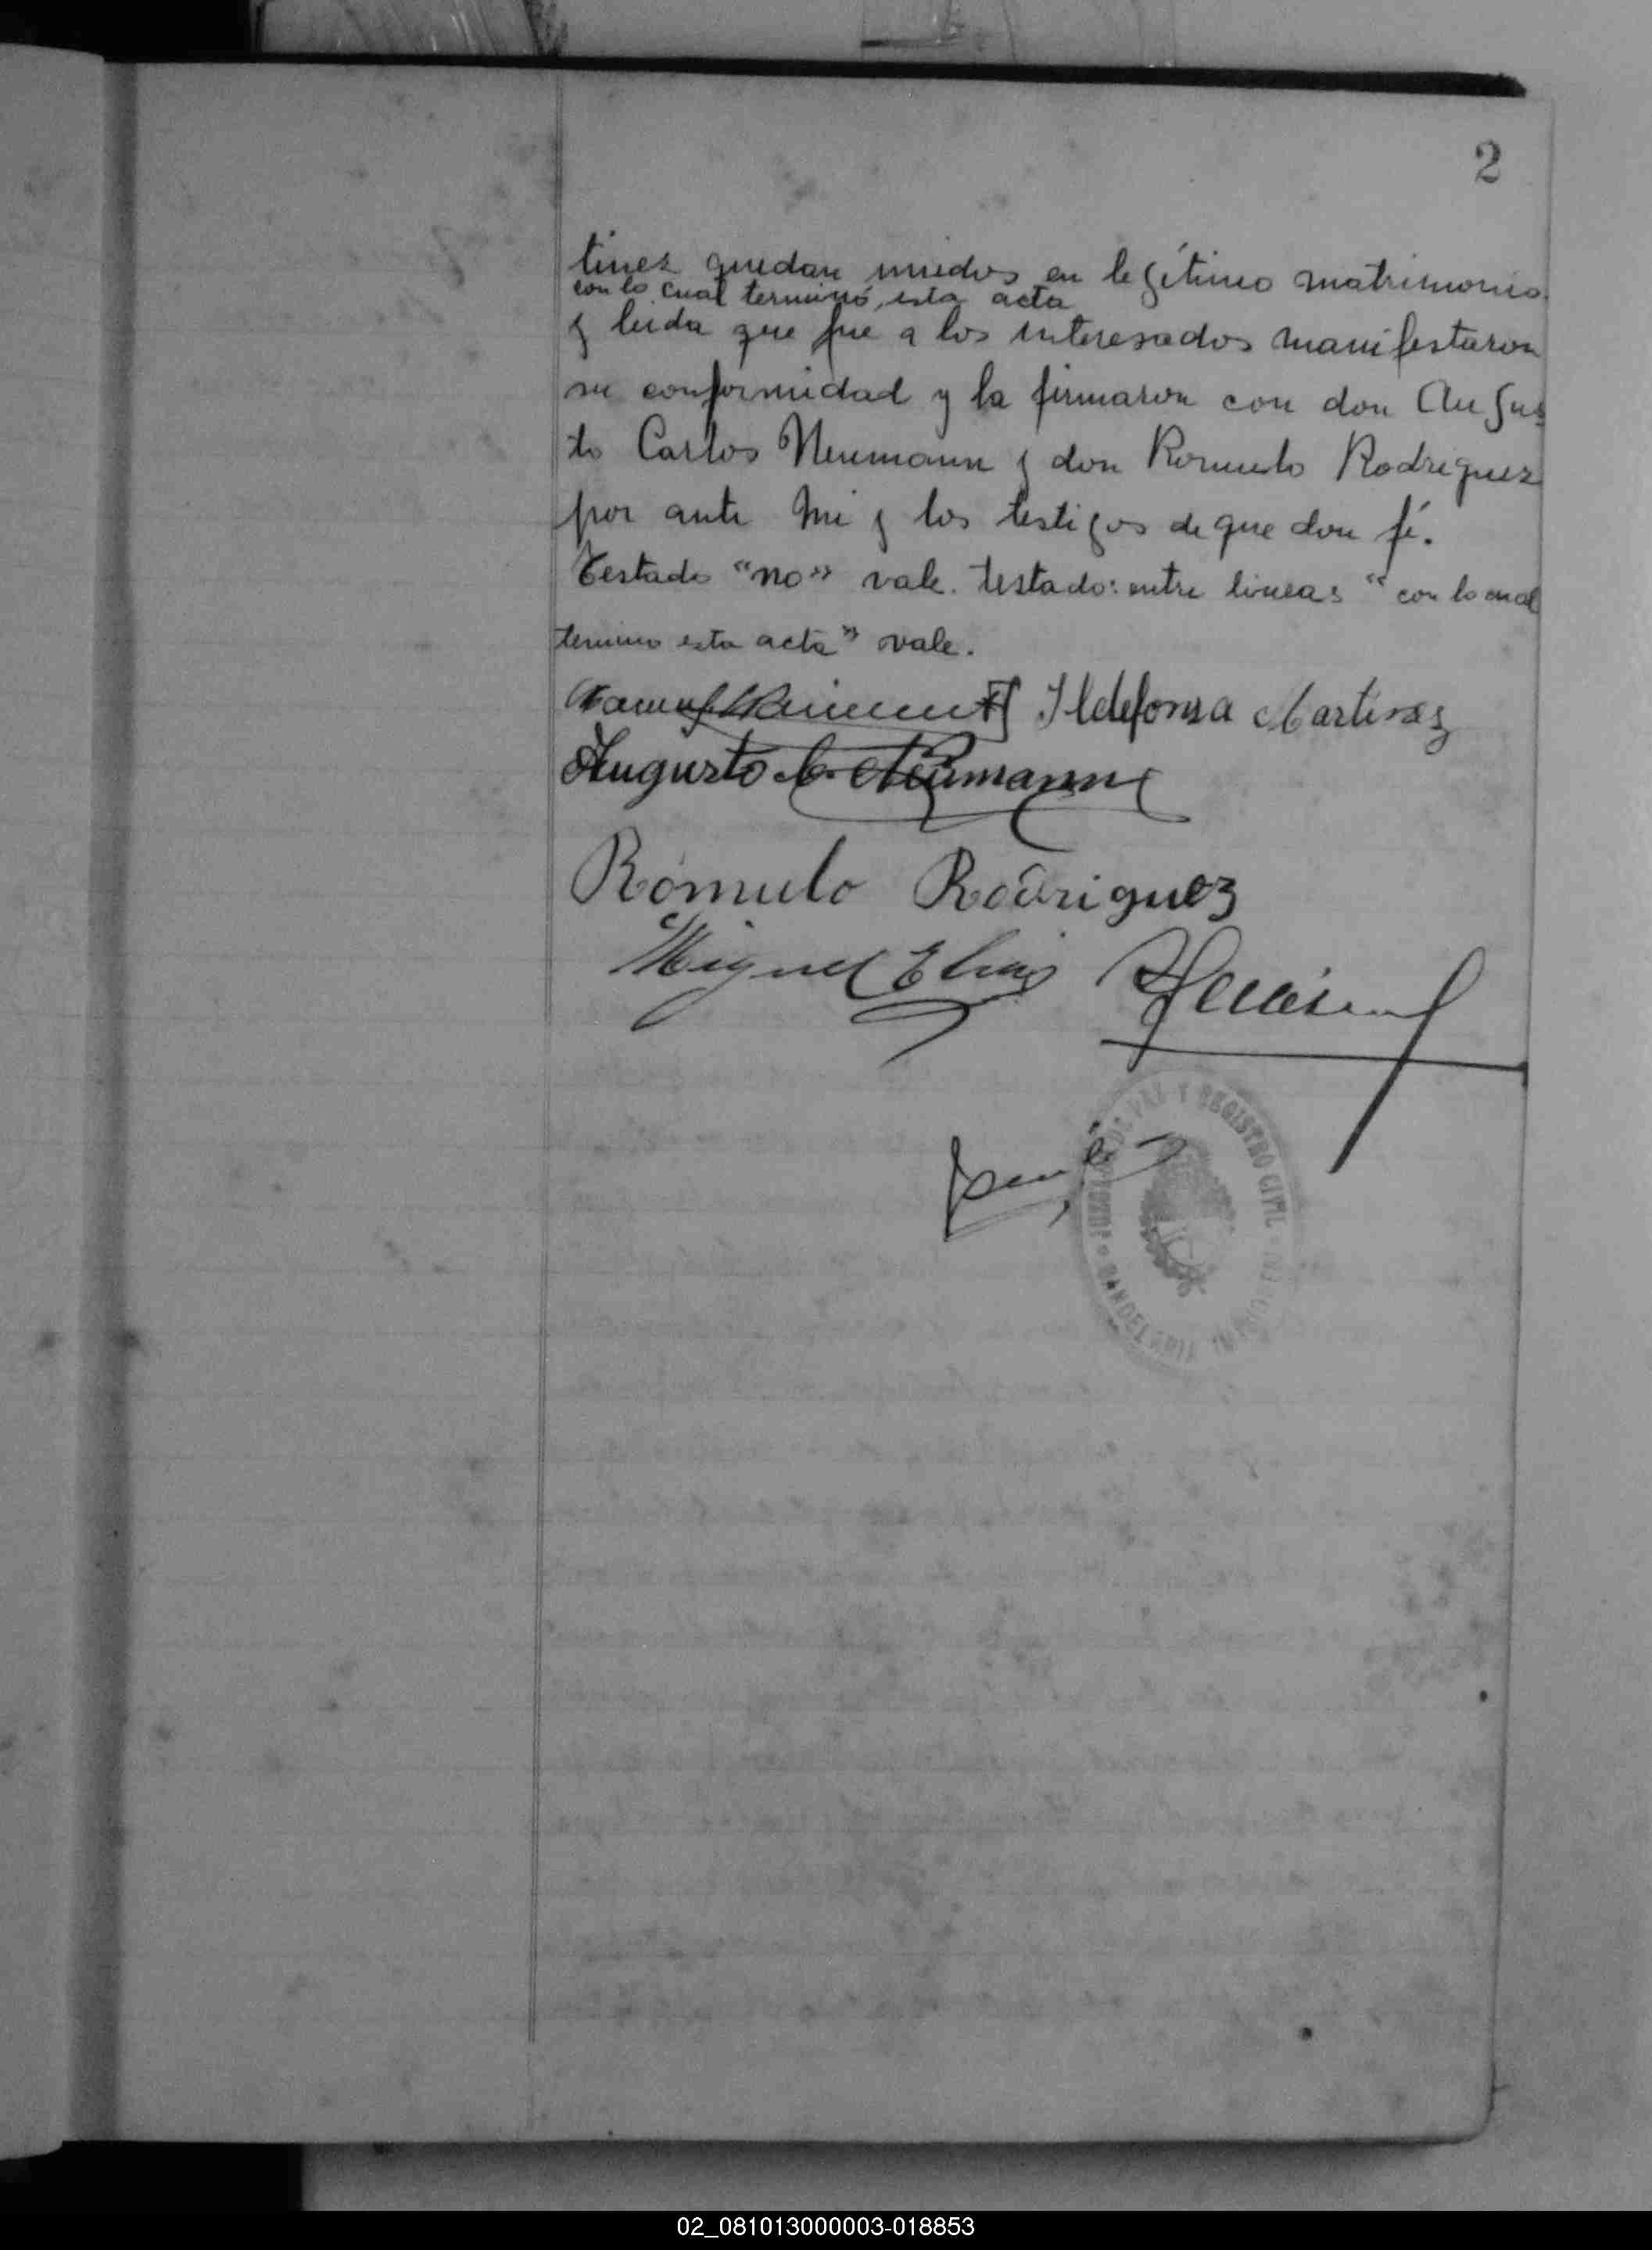 2
tinez quedan unidos en legítimo matrimonio.
con lo cual terminó esta acta
y leida que fue a los interesados manifestaron
su conformidad y la firmaron con don Augus
to Carlos Neumann y don Romulo Rodriguez
por ante mi y los testigos de que doy fé.
Testado "no" vale. testado: entre lineas "con lo cual
termino esta acta" vale.
Ildefonsa Martinez
Augusto C. Neumann
Rómulo Rodriguez
Miguel Elias
DE PAZ Y REGISTRO CIVIL
CANDELARIA
02_081013000003-018853